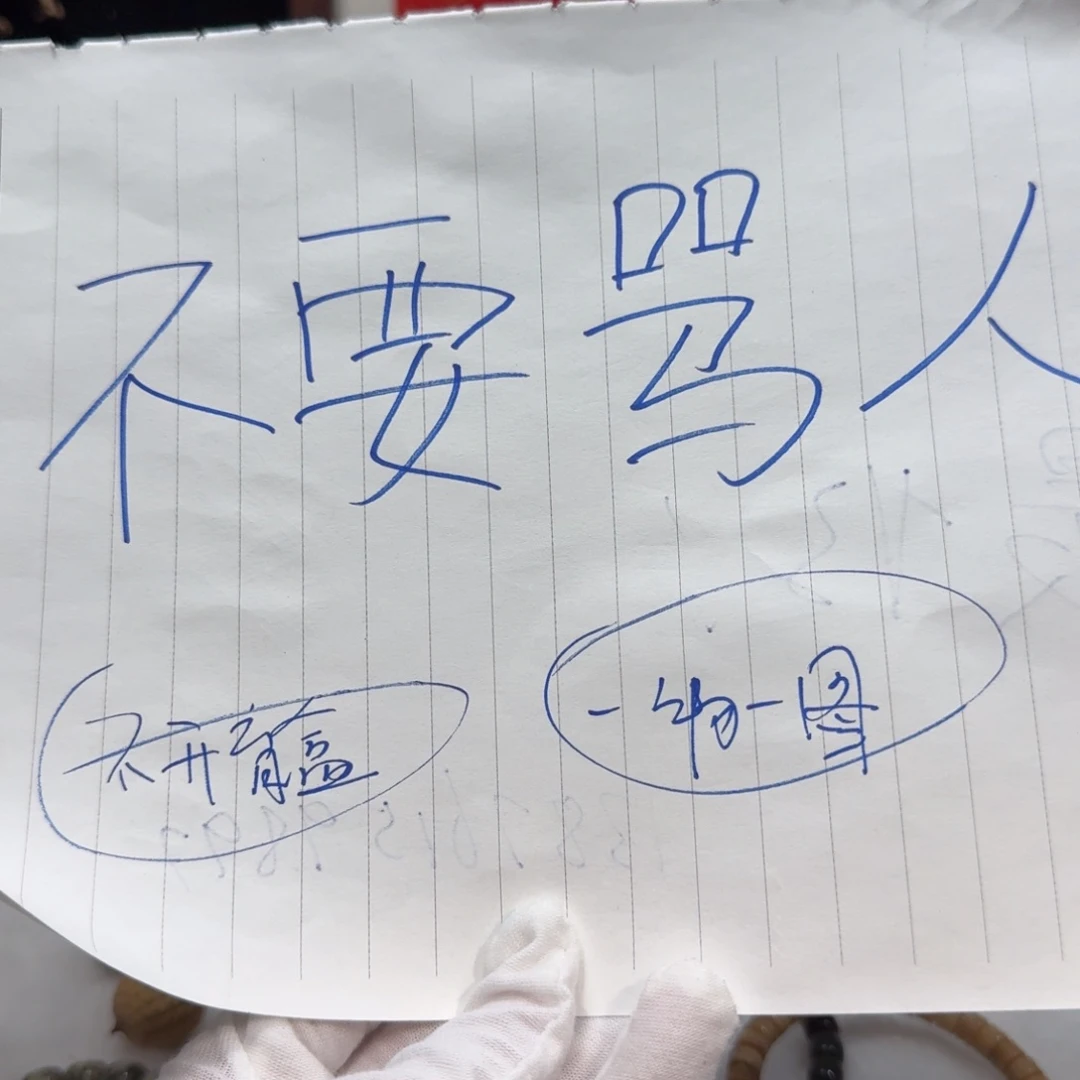 不要骂人
不开盲盒
一物一图